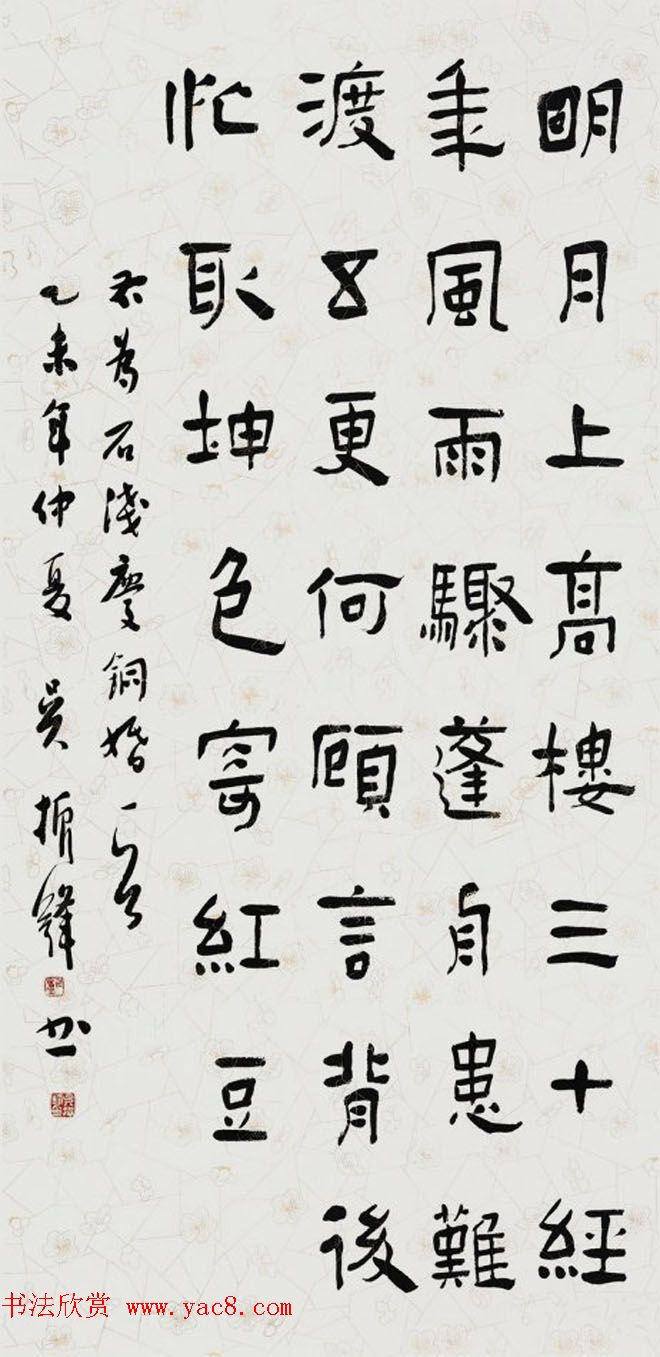 明月上髙樓三十經
年風雨驟蓬舟患難
渡五更何顧言背後
忙取坤色寄紅豆
右為石淺慶銅婚一
乙未年仲夏吳振鋒书
书法欣赏 www.yac8.com